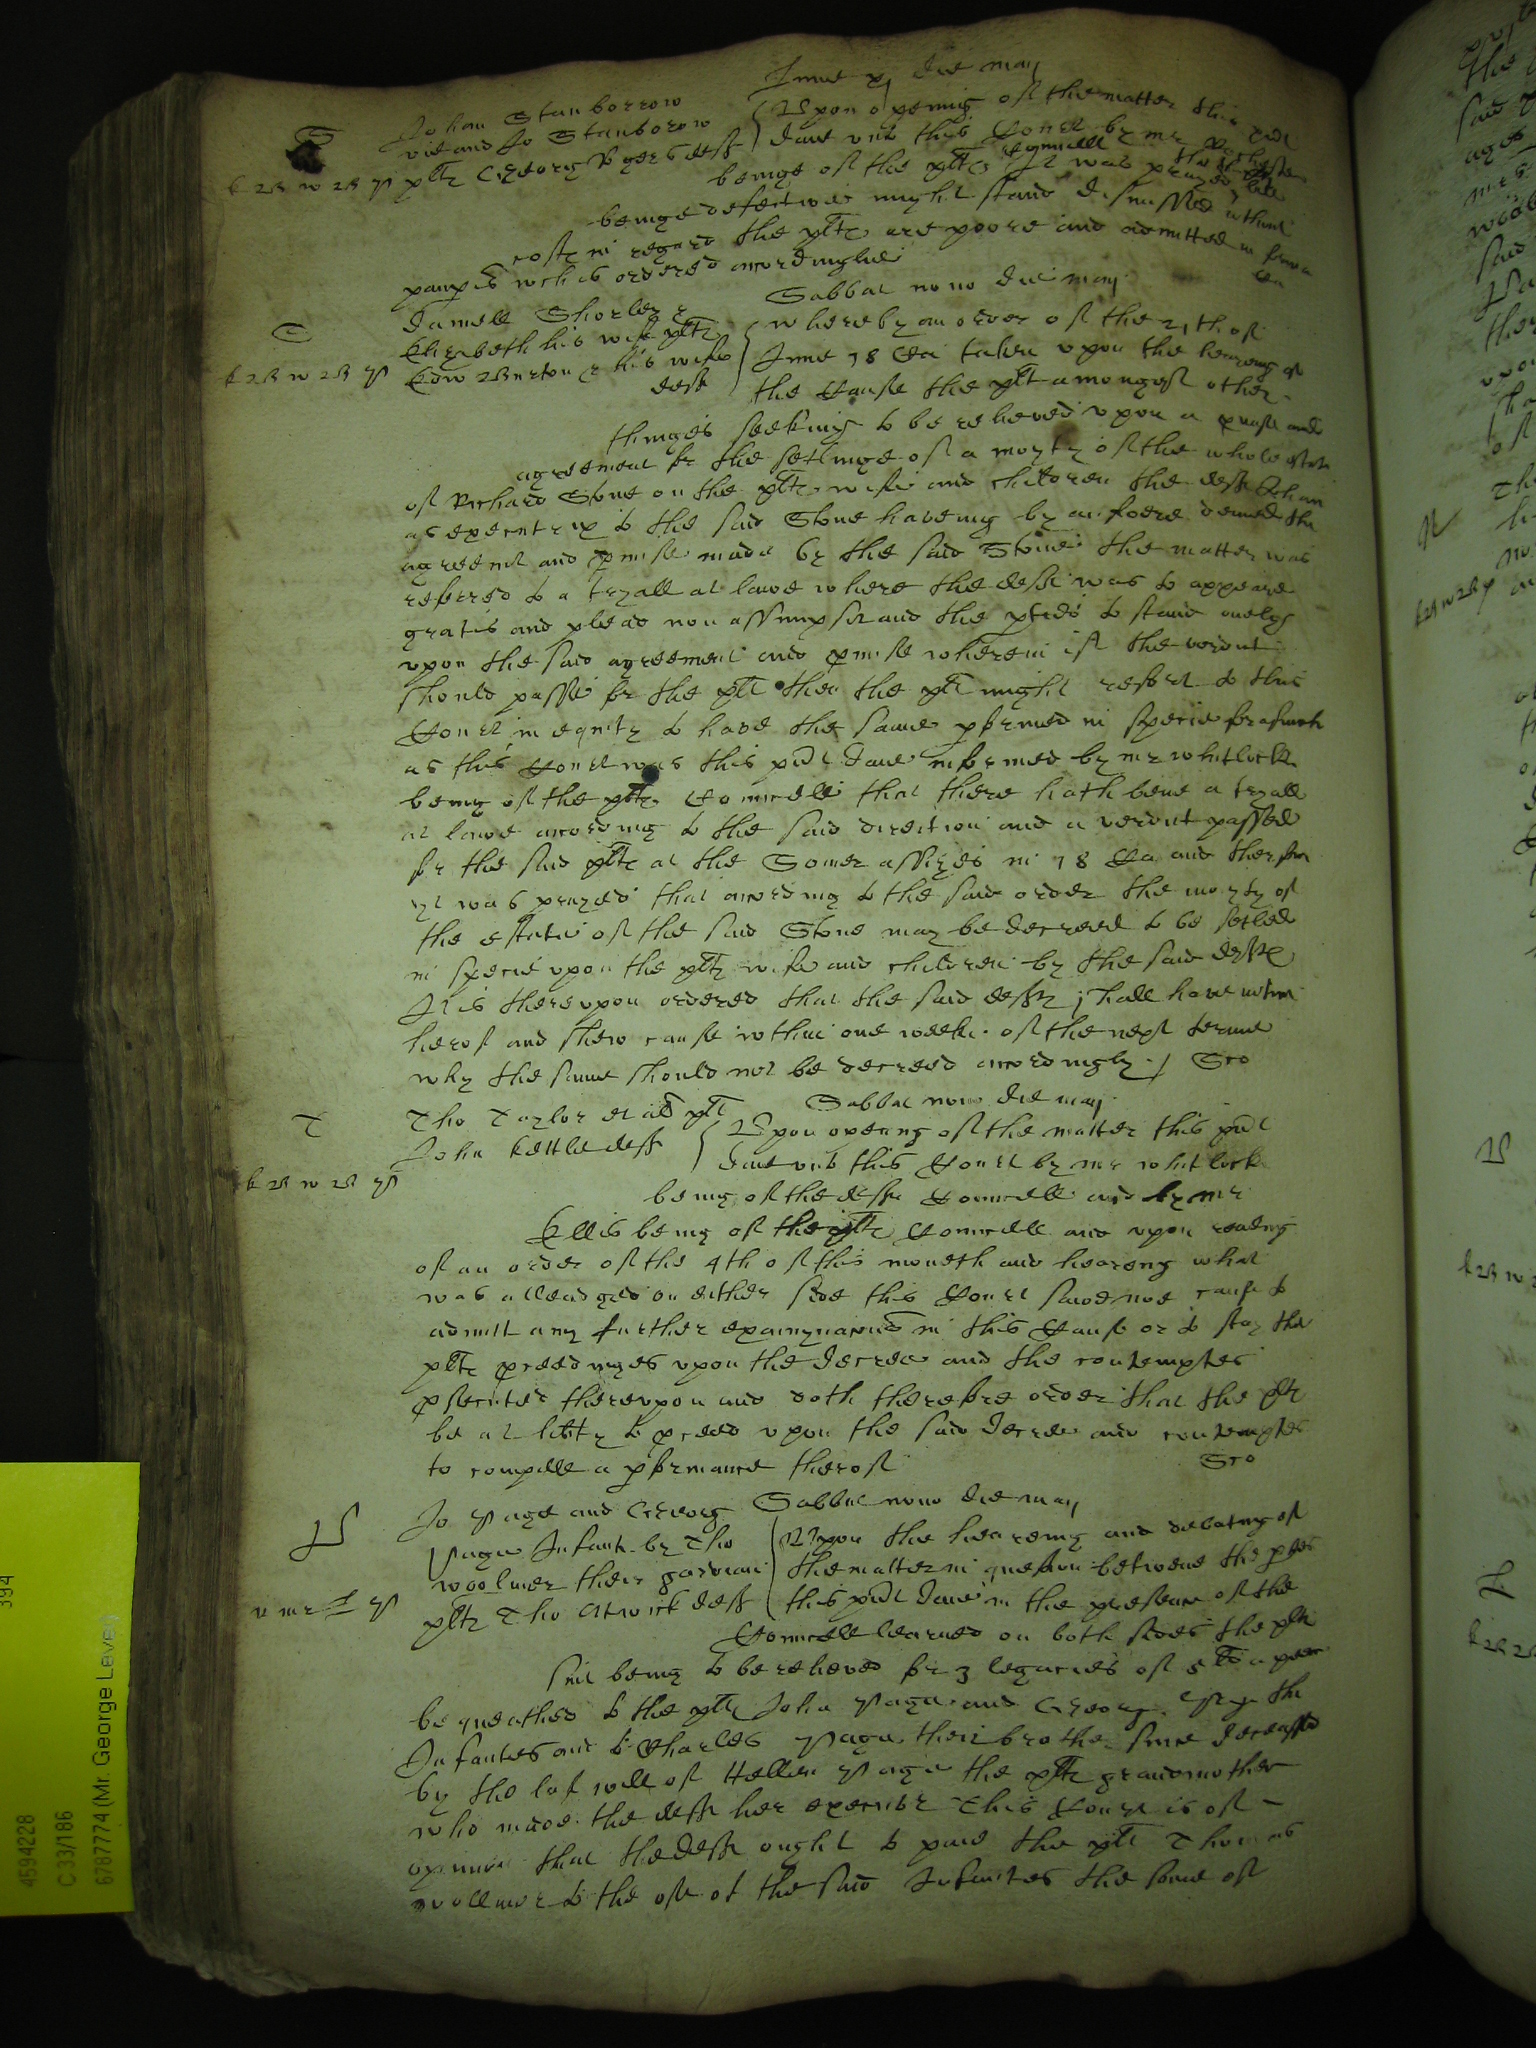 June xj die maij
S
Johan Stanborrow
vid and Jo Stanborow
plts Georg Rgers deft
Upon opening of the matter this pnt
daie unto this Court by mr
beinge of the plts Councell it was prayed that the plts bill
beinge defective might stand dismissed without
costs in regard the plts are poore and admitted in forma
pauperis wch is ordered accordinglie
Sabbat nono die maij
S
Daniell Shorler &
Elizabeth his wife plts
Edw Burton & his wife
deft
whereby an order of the 21th of
June 18 Ca taken upon the hearing of
the Cause the plt amongest other
thinges seeking to be relieved upon a pmise and
agreement for the setlinge of a moyty of the whole estate
of Richard Stone on the plts wife and children the deft Johan
as executrix to the said Stone haveing by answere denied the
agreemt and pmise made by the said Stone the matter was
referred to a tryall at lawe where the deft was to appeare
gratis and plead non assumpsit and the pties to stand onely
upon the said agreement and pmise wherein if the verdict
should passe for the plt then the plt might resort to this
Court in equity to have the same pformed in specie forasmuch
as this Court was this pnt daie informed by mr whitlock
being of the plts Councell that there hath bene a tryall
at lawe according to the said direction and a verdict passed
for the said plts at the Somer assizes in 18 Ca and therfore
yt was prayed that according to the said order the moyty of
the estate of the said Stone may be decreed to be setled
in specie upon the plts wife and children by the said defts
It is thereupon ordered that the said defts shall have notice
hereof and shew cause within one weeke of the next terme
why the same should not be decreed accordingly / Sco
T
Tho Taylor et al plt
John Kettle deft
Sabbat nono die maij
Upon opening of the matter this pnt
daie unto this Court by mr whitlock
being of the defts Councell and by mr
Ellis being of the plts Councell and upon reading
of an order of the 4th of this moneth and hearing what
was alleadged on either side this Court sawe noe cause to
admitt any further examynacions in this Cause or to stay the
plts pceedinges upon the decree and the contemptes
psecuted thereupon and doth therefore order that the plt
be at libty to pceed upon the said decree and contemptes
to compell a pformance therof
Sco
P
Jo Page and Georg
Page Infants by Tho
woolmer their gardian
plts Tho Atwick deft
Sabbat nono die maij
Upon the heareing and debating of
the matter in question betwene the pties
this pnt daie in the presence of the
Councell learned on both sides the plts
suit being to be relieved for 3 legacies of 5li a peece
bequeathed to the plts John Page and Georg Page the
Infantes and to Charles Page their brother since deceassed
by the last will of Hellen Page the plts grandmother
who made the deft her executor This Court is of
opinion that the deft ought to paie the plt Thomas
woollmer to the use of the said Infantes the some of
4594228
C 33/186
6787774 (Mr. George Level)